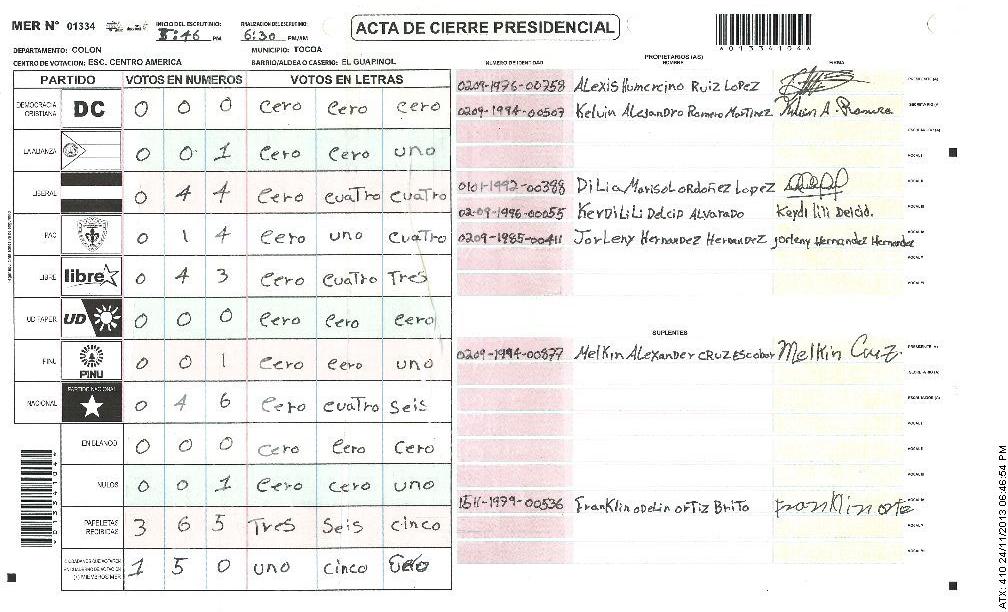 MER N° 01334 INICIO DEL ESCRUTINIO: 5:46 PM FINALIZACION ESCRUTINIO: 6:30 PM/AM ACTA DE CIERRE PRESIDENCIAL
DEPARTAMENTO: COLON MUNICIPIO: TOCOA
CENTRO DE VOTACION: ESC. CENTRO AMERICA BARRIO/ALDEA O CASERIO: EL GUAPINOL
PARTIDO VOTOS EN NUMEROS VOTOS EN LETRAS
DEMOCRACIA CRISTIANA DC 0 0 0 Cero Cero Cero
LA ALIANZA 0 0 1 Cero Cero uno
LIBERAL 0 4 4 Cero cuatro cuatro
PAC 0 1 4 Cero uno cuatro
LIBRE libre 0 4 3 Cero cuatro Tres
UD FAPER UD 0 0 0 Cero Cero Cero
PINU PINU 0 0 1 Cero Cero uno
NACIONAL PARTIDO NACIONAL 0 4 6 Cero cuatro Seis
EN BLANCO 0 0 0 Cero Cero Cero
NULOS 0 0 1 Cero Cero uno
PAPELETAS RECIBIDAS 3 6 5 Tres Seis cinco
CIUDADANOS QUE VOTARON EN CUADERNO DE VOTACION (+) MIEMBROS MER 1 5 0 uno cinco Cero
PROPIETARIOS (AS)
NUMERO DE IDENTIDAD NOMBRE FIRMA
0209-1976-00258 Alexis Humercino Ruiz Lopez PRESIDENTE (A)
0209-1994-00507 Kelvin Alejandro Romero Martinez Kelvin A. Romero SECRETARIO (A)
ESCRUTADOR (A)
VOCAL I
0101-1992-00388 Dilia Marisol Ordoñez Lopez VOCAL II
0209-1996-00055 Keydi Lili Delcid Alvarado Keydi lili Delcid. VOCAL III
0209-1985-00411 Jorleny Hernandez Hernandez Jorleny Hernandez Hernandez VOCAL IV
VOCAL V
VOCAL VI
SUPLENTES
0209-1994-00877 Melkin Alexander Cruz Escobar Melkin Cruz. PRESIDENTE (A)
SECRETARIO (A)
ESCRUTADOR (A)
VOCAL I
VOCAL II
VOCAL III
1511-1979-00536 Franklin odelin ortiz Brito Franklin ortiz VOCAL IV
VOCAL V
VOCAL VI
ATX: 410 24/11/2013 06:46:54 PM